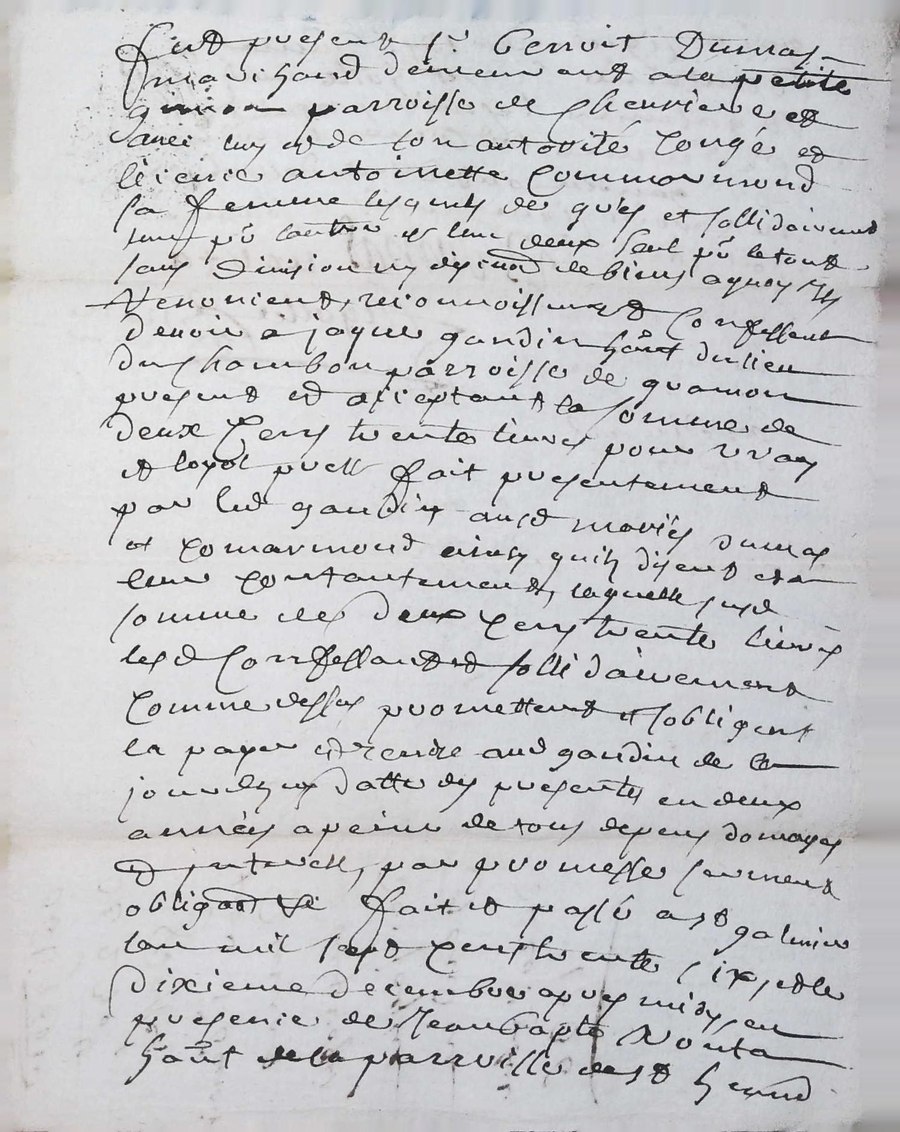 fut present sr Benoit Dumas
marchand demeurant a la petite
parroisse de Chevriere et
avec luy et de son autorité congé et
licence antoinette Commarmond
sa femme lesquels de gré et sollidairement
lun pr lautre et lun deux seul pr le tout
sans division ny discution de biens a quoy ils
renoncient, reconnoissent et confessent
devoir à jaque gaudin habitt du lieu
du Chambon parroisse de
present et acceptant la somme de
deux cens trente livres pour vray
et loyal prest fait presentement
par led gaudin ausd mariés dumas
et comarmond ainsy quils disent et a
leur contantement, laquelle susd
somme de deux cens trente livres
lesd confessants et sollidairement
comme dessus promettent et sobligent
la payer et rendre aud gaudin de ce
jourdhuy datte des presentes en deux
années a peine de tous depens domages
et interests, par promesse serment
obligaon fait et passé a st galmier
lan mil sept cens trente six et le
dixieme decembre apres midy en
presence de Jean bapte
habitt de la parroisse de st